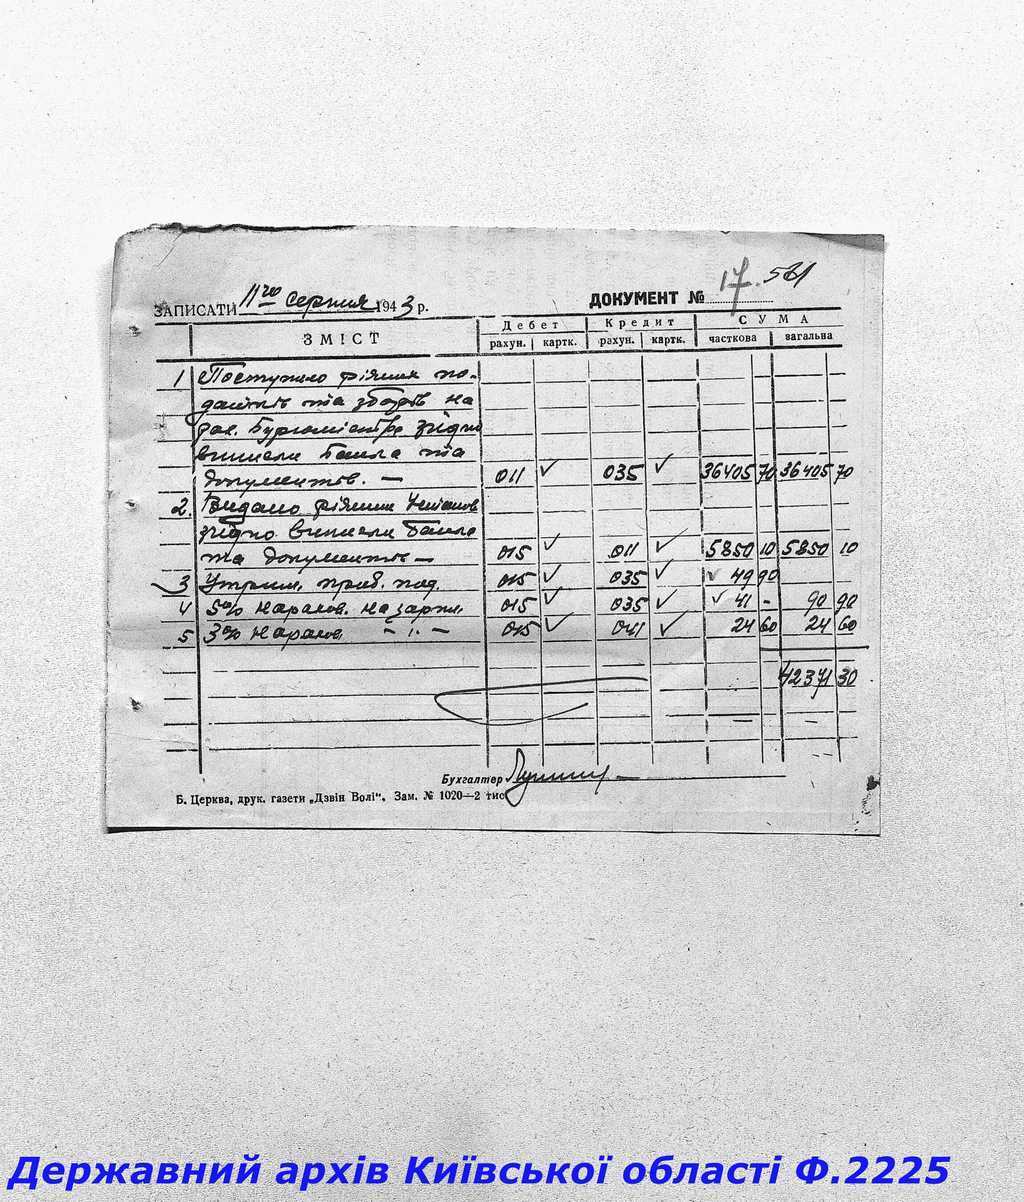 17. 531
ЗАПИСАТИ 11го серпня 1943 р. ДОКУМЕНТ №
ЗМІСТ Дебет Кредит СУМА
рахун. картк. рахун. картк. часткова загальна
1 Поступило різних по-
датків та зборів на
рах. Бургомістра згідно
виписки банка та
документів. — 011 ✓ 035 ✓ 36405 70 36405 70
2. Видано різним
згідно виписки банка
та документів — 015 ✓ 011 ✓ 5850 10 5850 10
3 Утрим. приб. под. 015 ✓ 035 ✓ ✓ 49 90
4 5% нарахов. на зарпл. 015 ✓ 035 ✓ ✓ 41 - 90 90
5 3% нарахов. — ‟ — 015 ✓ 041 ✓ 24 60 24 60
42371 30
Бухгалтер
Б. Церква, друк. газети „Дзвін Волі“. Зам. № 1020—2 тис
Державний архів Київської області Ф.2225